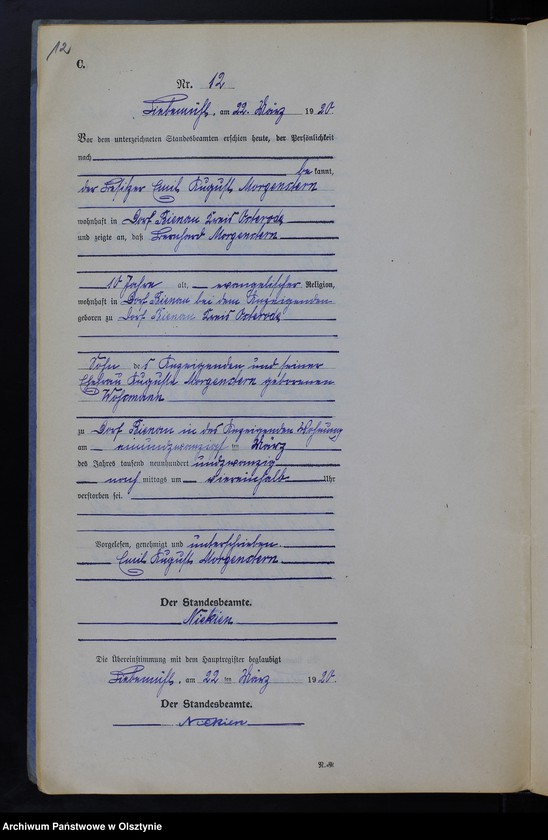 12
C.
Nr. 12
Liebemühl, am 22. März 1920
Vor dem unterzeichneten Standesbeamten erschien heute, der Persönlichkeit
nach
bekannt,
der Besitzer Emil August Morgenstern
wohnhaft in Dorf Bienau Kreis Osterode
und zeigte an, daß Bernhard Morgenstern
10 Jahre alt, evangelischer Religion,
wohnhaft in Dorf Bienau bei dem Anzeigenden
geboren zu Dorf Bienau Kreis Osterode
Sohn des Anzeigenden und seiner
Ehefrau Auguste Morgenstern geborenen
zu Dorf Bienau in des Anzeigenden Wohnung
am einundzwanzigsten März
des Jahres tausend neunhundert undzwanzig
nach mittags um viereinhalb Uhr
verstorben sei.
Vorgelesen, genehmigt und unterschrieben.
Emil August Morgenstern
Der Standesbeamte.
Die Übereinstimmung mit dem Hauptregister beglaubigt
Liebemühl, am 22 ten März 1920.
Der Standesbeamte.
Archiwum Państwowe w Olsztynie